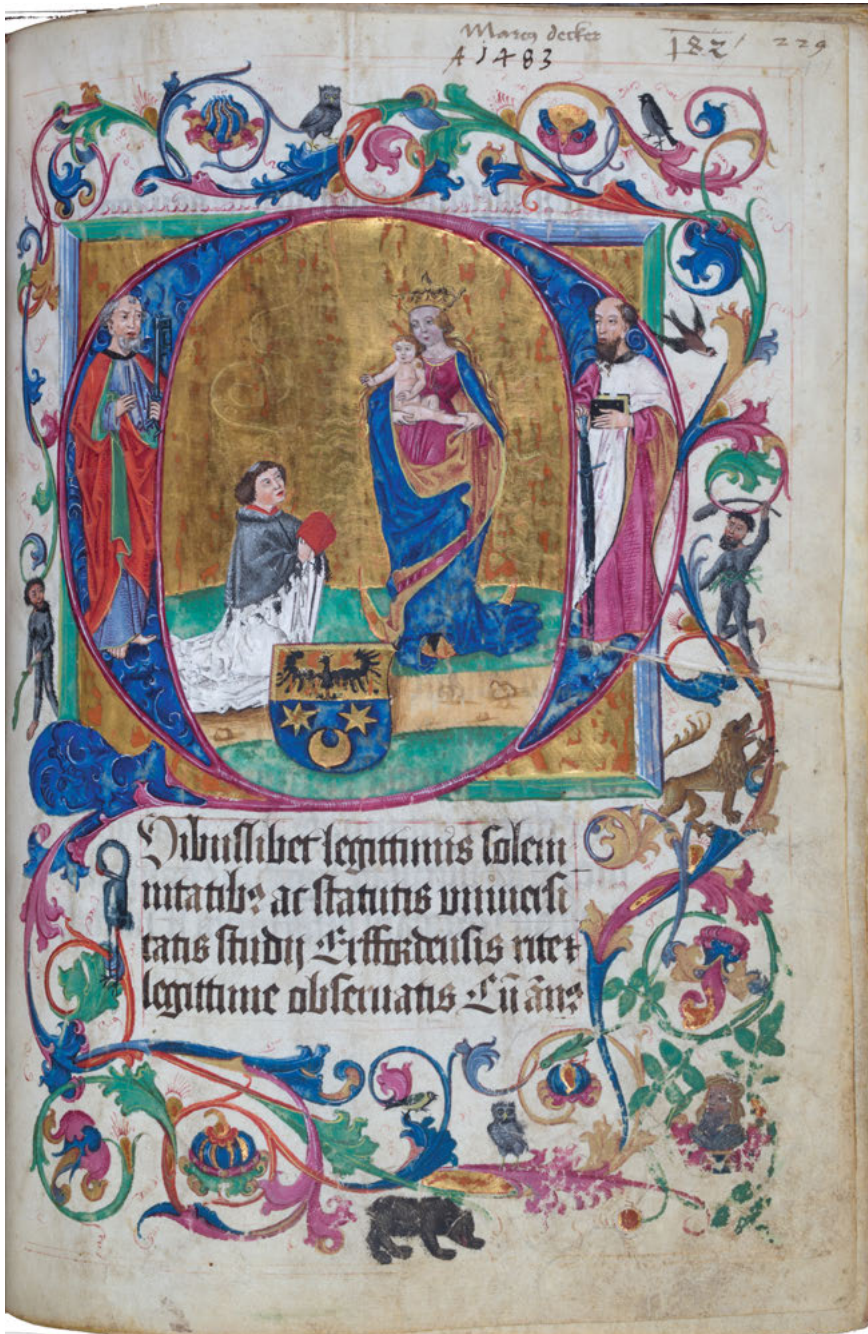 Marcꝰ decker
A 1483
182 229
QVibuslibet legittimis solem
nitatibꝫ ac statutis vniuersi
tatis studij Erffordensis rite ⁊
legittime obseruatis Cū